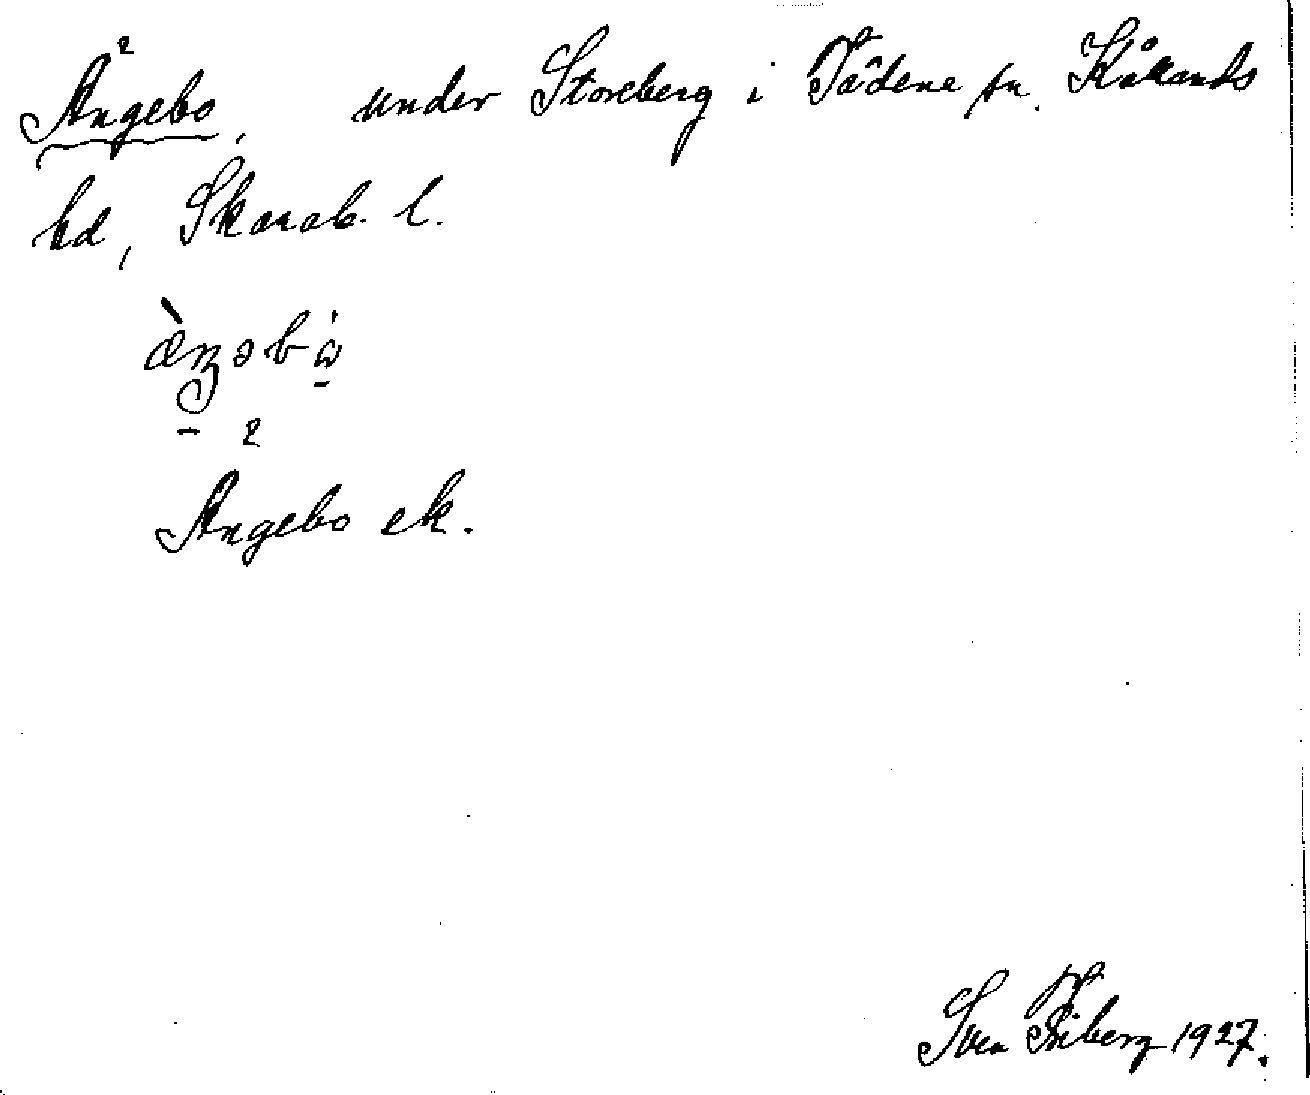 Ängebo, under Storeberg i Tådene sn. Kållands
hd, Skarab. l.
Ängebo ek.
Sven Friberg 1927.